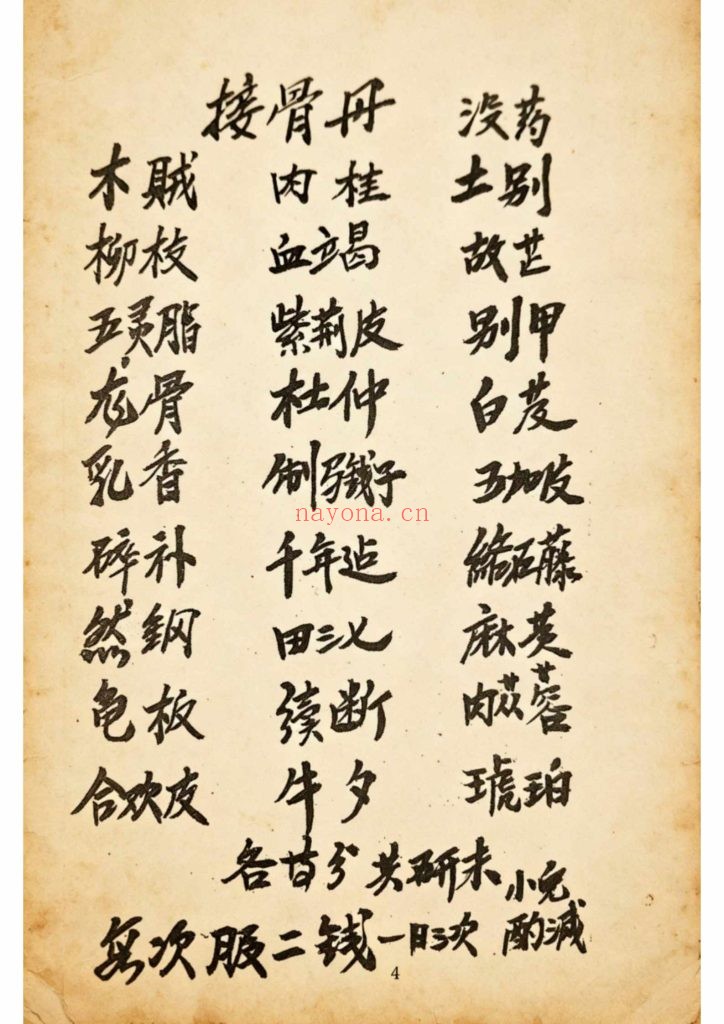 接骨丹 没药
木贼 肉桂 土别
柳枝 血竭 故芷
五灵脂 紫荆皮 别甲
龙骨 杜仲 白芨
乳香 制马钱子 五加皮
碎补 千年近 络石藤
然铜 田三七 麻黄
龟板 续断 肉苁蓉
合欢皮 牛夕 琥珀
各等分 共研末 小儿
每次服二钱 一日三次 酌减
nayona.cn
4